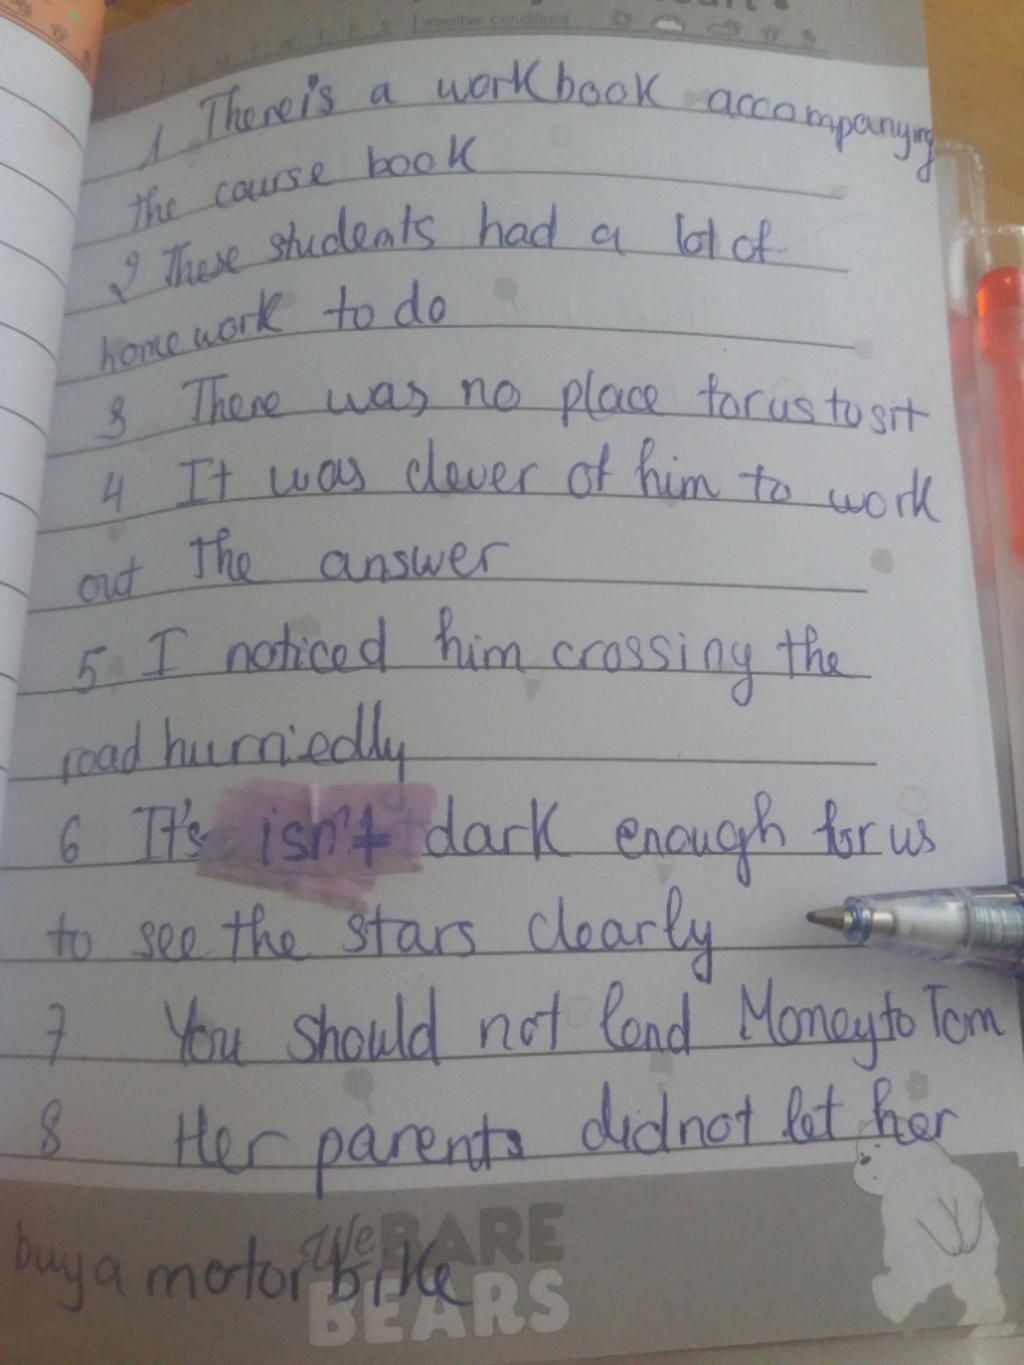 weather conditions
1 There's a workbook accompanying
the course book
2 These students had a lot of
homework to do
3 There was no place for us to sit
4 It was clever of him to work
out the answer
5 I noticed him crossing the
road hurriedly
6 It's isn't dark enough for us
to see the stars clearly
7 You should not lend Money to Tom
8 Her parents did not let her
buy a motorbike
We BARE
BEARS